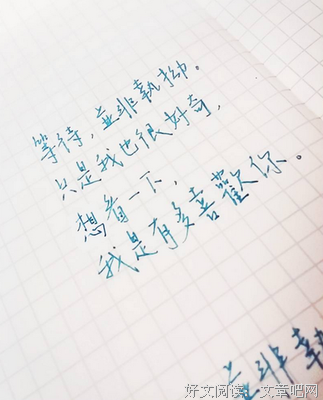 等待，並非執拗。
只是我也很好奇，
想看一下，
我是有多喜歡你。
並非執
好文阅读：文章吧网